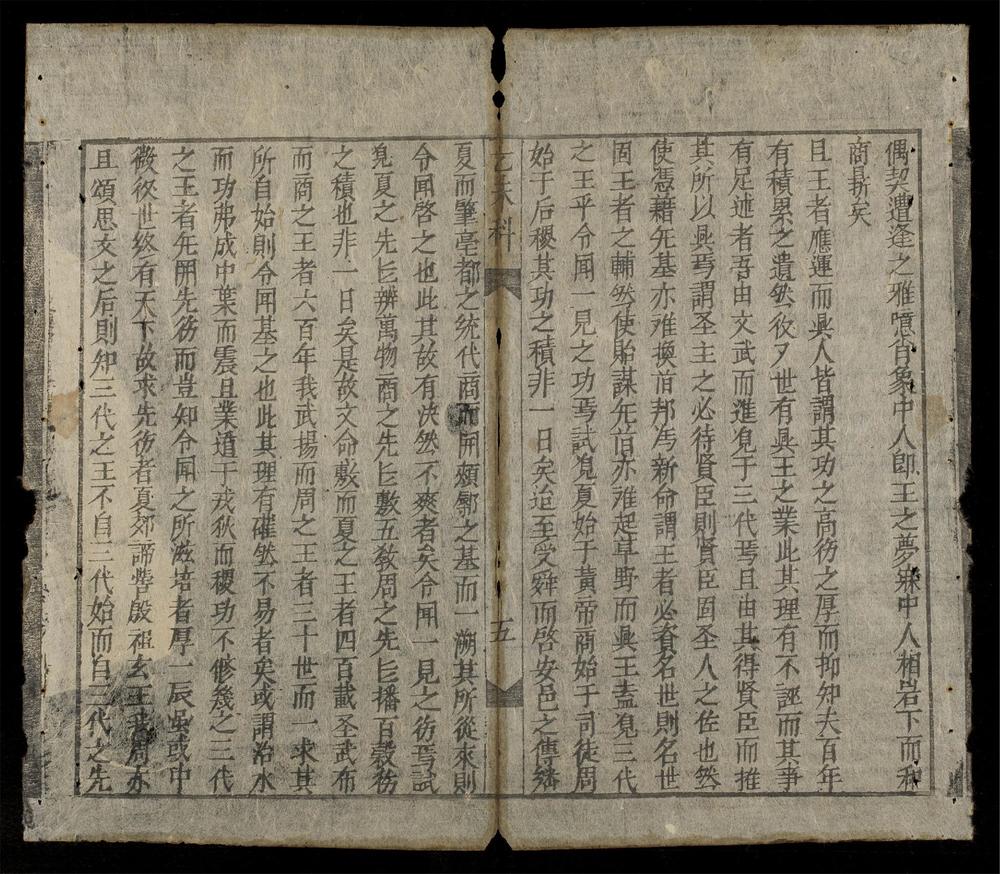 偶契遭逢之雅噫肖象中人即王之夢寐中人相岩下而和
商鼎矣
且王者應運而興人皆謂其功之高徳之厚而抑知夫百年
有積累之遺然後叉世有興王之業此其理有不誣而其事
有足述者吾由文武而進覓于三代焉且由其得賢臣而推
其所以興焉謂圣主之必待賢臣則賢臣固圣人之佐也然
使憑藉先基亦难換旧邦為新命謂王者必資名世則名世
固王者之輔然使貽謀先旧亦难起草野而興王盖覓三代
之王乎令聞一見之功焉試覓夏始于黄帝商始于司徒周
始于后稷其功之積非一日矣迨至受舜而啓安邑之傳
夏而肇亳都之統代商而開郟鄏之基而一溯其所從來則
令聞啓之也此其故有决然不爽者矣令聞一見之徳焉試
覓夏之先辨萬物商之先敷五教周之先播百穀徳
之積也非一日矣是故文命敷而夏之王者四百載圣武布
而商之王者六百年我武揚而周之王者三十世而一求其
所自始則令聞基之也此其理有確然不易者矣或謂治水
而功弗成中葉而震且業遁于戎狄而稷功不修幾之三代
之王者先開先徳而豈知令聞之所滋培者厚一辰或中
微後世終有天下故求先徳者夏郊禘嚳殷祖玄王周亦
且頌思文之后則知三代之王不自三代始而自三代之先
乙未科
五